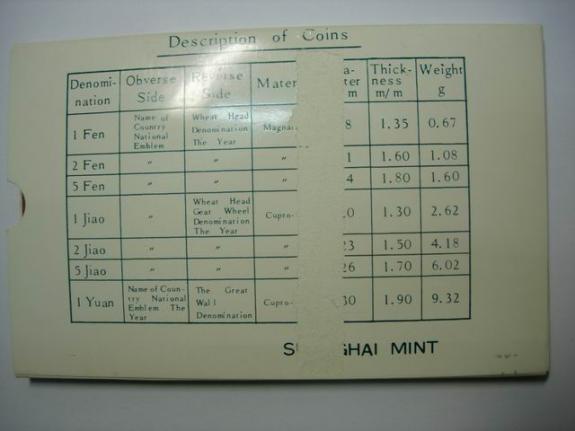 Description of Coins
Denomi- Obverse Reverse Mater Thick- Weight
nation Side Side ter ness g
m m/m
1 Fen Name of Country National Emblem Wheat Head Denomination The Year 8 1.35 0.67
2 Fen " " " 1 1.60 1.08
5 Fen " " " 4 1.80 1.60
1 Jiao " Wheat Head Gear Wheel Denomination The Year Cupro- 0 1.30 2.62
2 Jiao " " " 23 1.50 4.18
5 Jiao " " " 26 1.70 6.02
1 Yuan Name of Coun- try National Emblem The Year The Great Wall Denomination Cupro- 30 1.90 9.32
S GHAI MINT